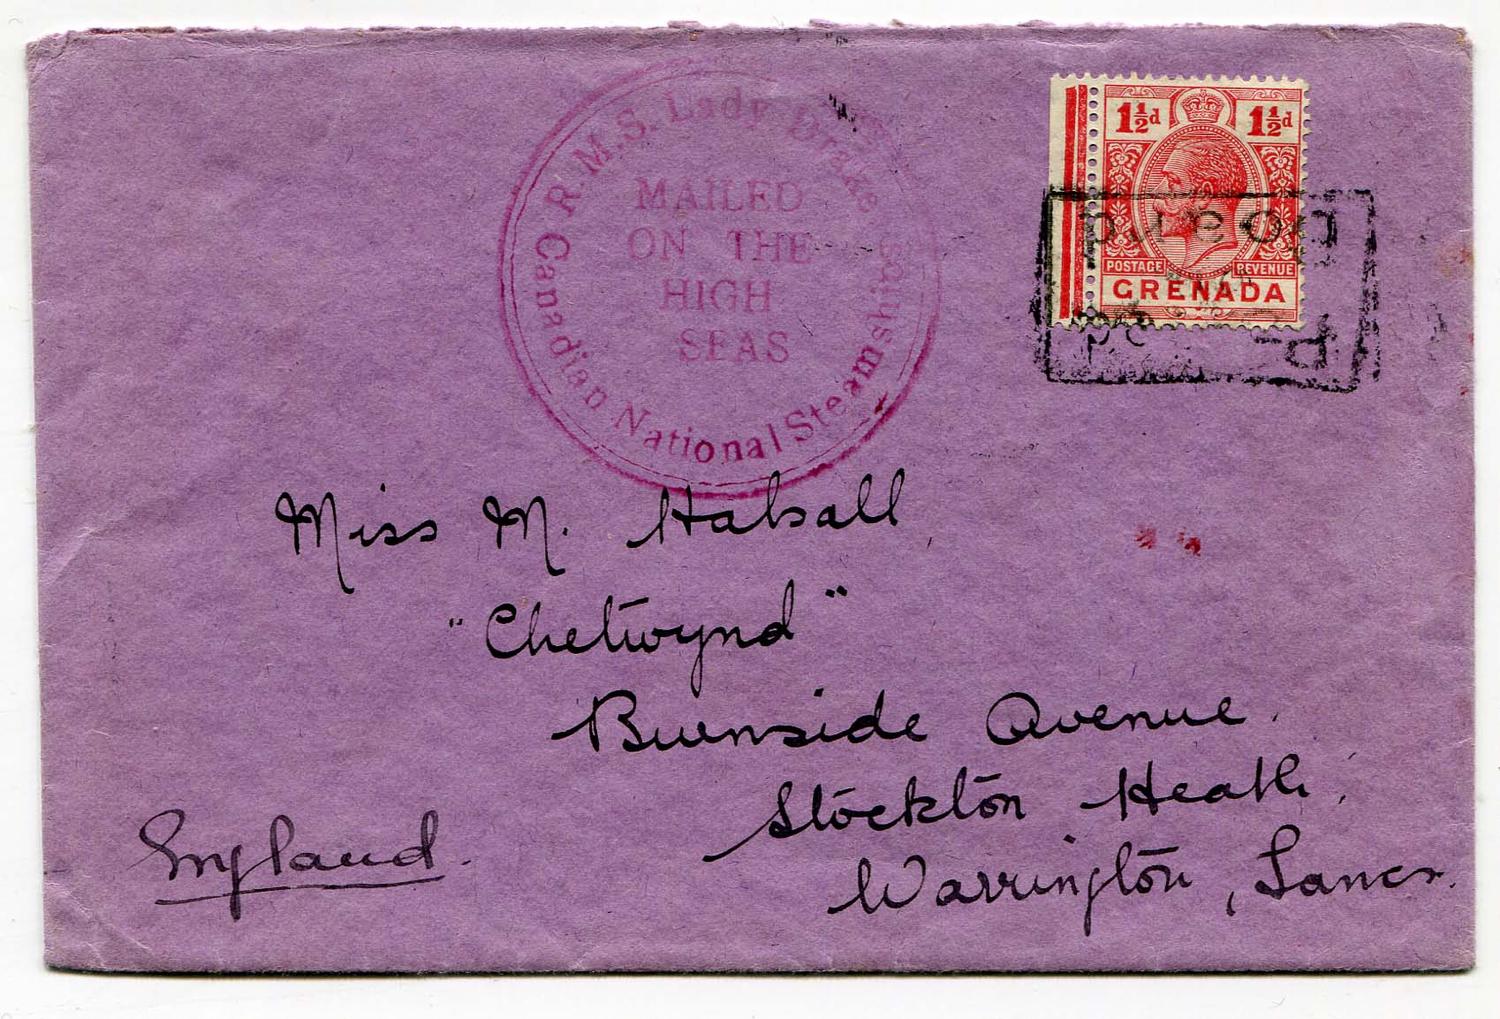 R.M.S. Lady Drake
MAILED
ON THE
HIGH
SEAS
Canadian National Steamships
1½d 1½d
POSTAGE REVENUE
GRENADA
Miss M. Halsall
"Chetwynd"
Burnside Avenue.
Stockton Heath,
Warrington, Lancs.
England.